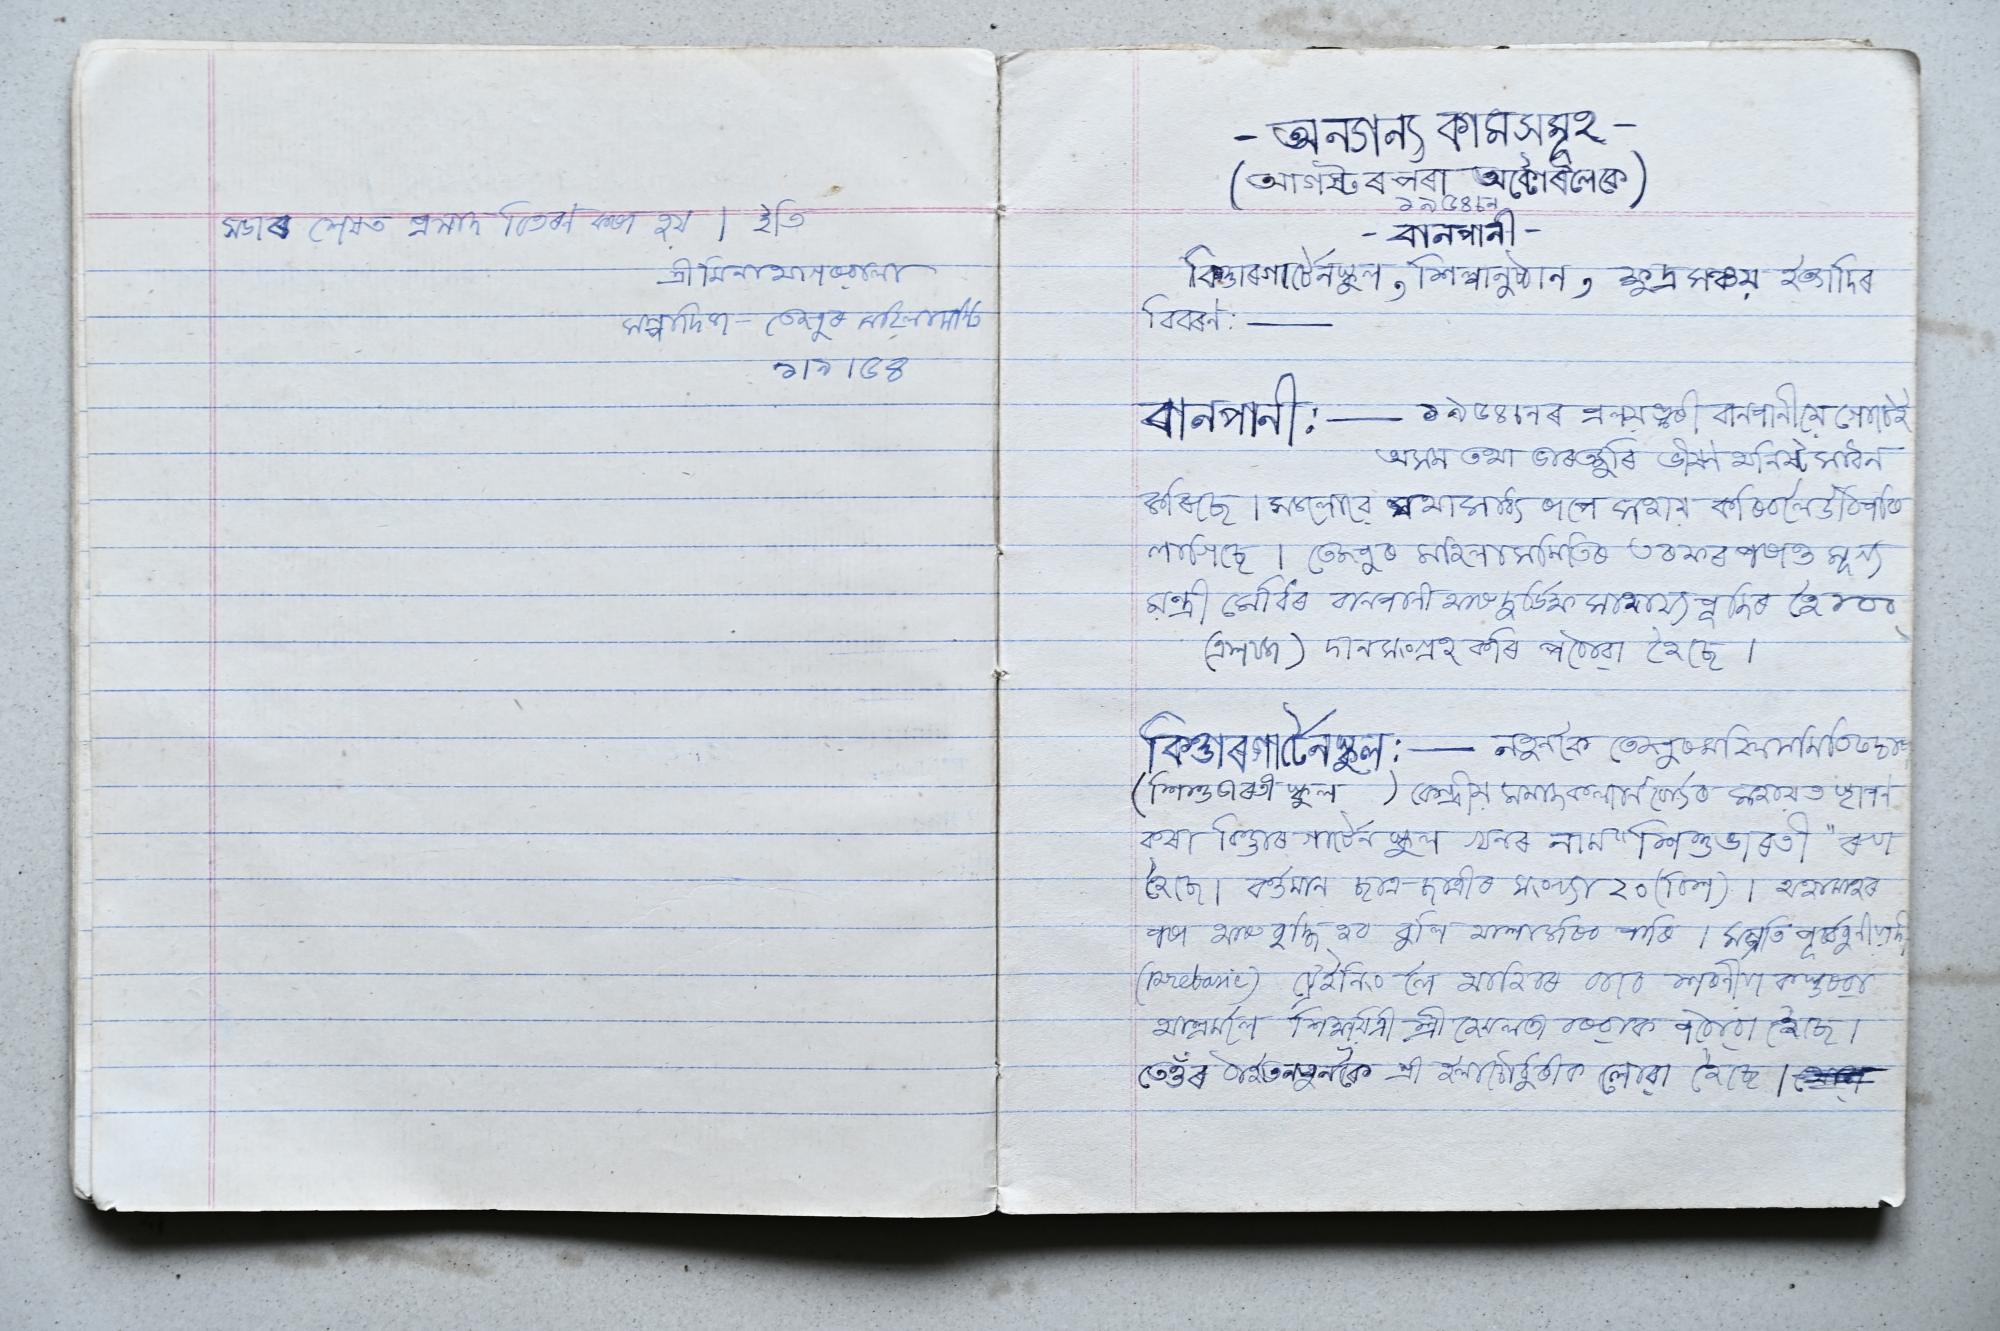 সভাৰ শেষত প্ৰসাদ বিতৰণ কৰা হয় । ইতি
শ্ৰী মিনা আগৰৱালা
সম্পাদিকা - তেজপুৰ মহিলা সমিতি
১।৯।৫৪
- অন্যান্য কামসমূহ -
(আগষ্টৰ পৰা অক্টোবৰলৈকে)
১৯৫৪ চন
- বানপানী -
কিণ্ডাৰগাৰ্টেনস্কুল, শিল্পানুষ্ঠান, ক্ষুদ্ৰ সঞ্চয় ইত্যাদিৰ
বিবৰণ : —
বানপানী : — ১৯৫৪ চনৰ প্ৰলয়ঙ্কৰী বানপানীয়ে গোটেই
অসম তথা ভাৰতজুৰি ভীষণ অনিষ্ট সাধন
কৰিছে । সকলোৱে যথাসাধ্য ৰূপে সহায় কৰিবলৈ উঠিপৰি
লাগিছে । তেজপুৰ মহিলা সমিতিৰ তৰফৰ পৰাও মূখ্য
মন্ত্ৰী মেধিৰ বানপানী আৰু দুৰ্ভিক্ষ সাহায্য পুঁজিৰ হৈ ১০০
(এশটকা) দান সংগ্ৰহ কৰি পঠোৱা হৈছে ।
কিণ্ডাৰগাৰ্টেনস্কুল : — নতুনকৈ তেজপুৰ মহিলা সমিতিৰ দ্বাৰা
(শিশুভাৰতী স্কুল) কেন্দ্ৰীয় সমাজ কল্যাণ বোৰ্ডৰ সহায়ত স্থাপন
কৰা কিণ্ডাৰ গাৰ্টেন স্কুল খনৰ নাম "শিশু ভাৰতী" ৰখা
হৈছে । বৰ্ত্তমান ছাত্ৰ-ছাত্ৰীৰ সংখ্যা ২০ (বিশ) । অহামাহৰ
পৰা আৰু বৃদ্ধি হব বুলি আশা কৰিব পাৰি । সম্প্ৰতি পূৰ্ব্ববুনীয়াদী
(Prebasic) ট্ৰেইনিং লৈ আহিবৰ বাবে শৰণীয়া কস্তুৰবা
আশ্ৰমলৈ শিক্ষয়িত্ৰী শ্ৰী হেমলতা বৰুৱাক পঠোৱা হৈছে ।
তেওঁৰ ঠাইত নতুনকৈ শ্ৰী ইলা চৌধুৰীক লোৱা হৈছে ।